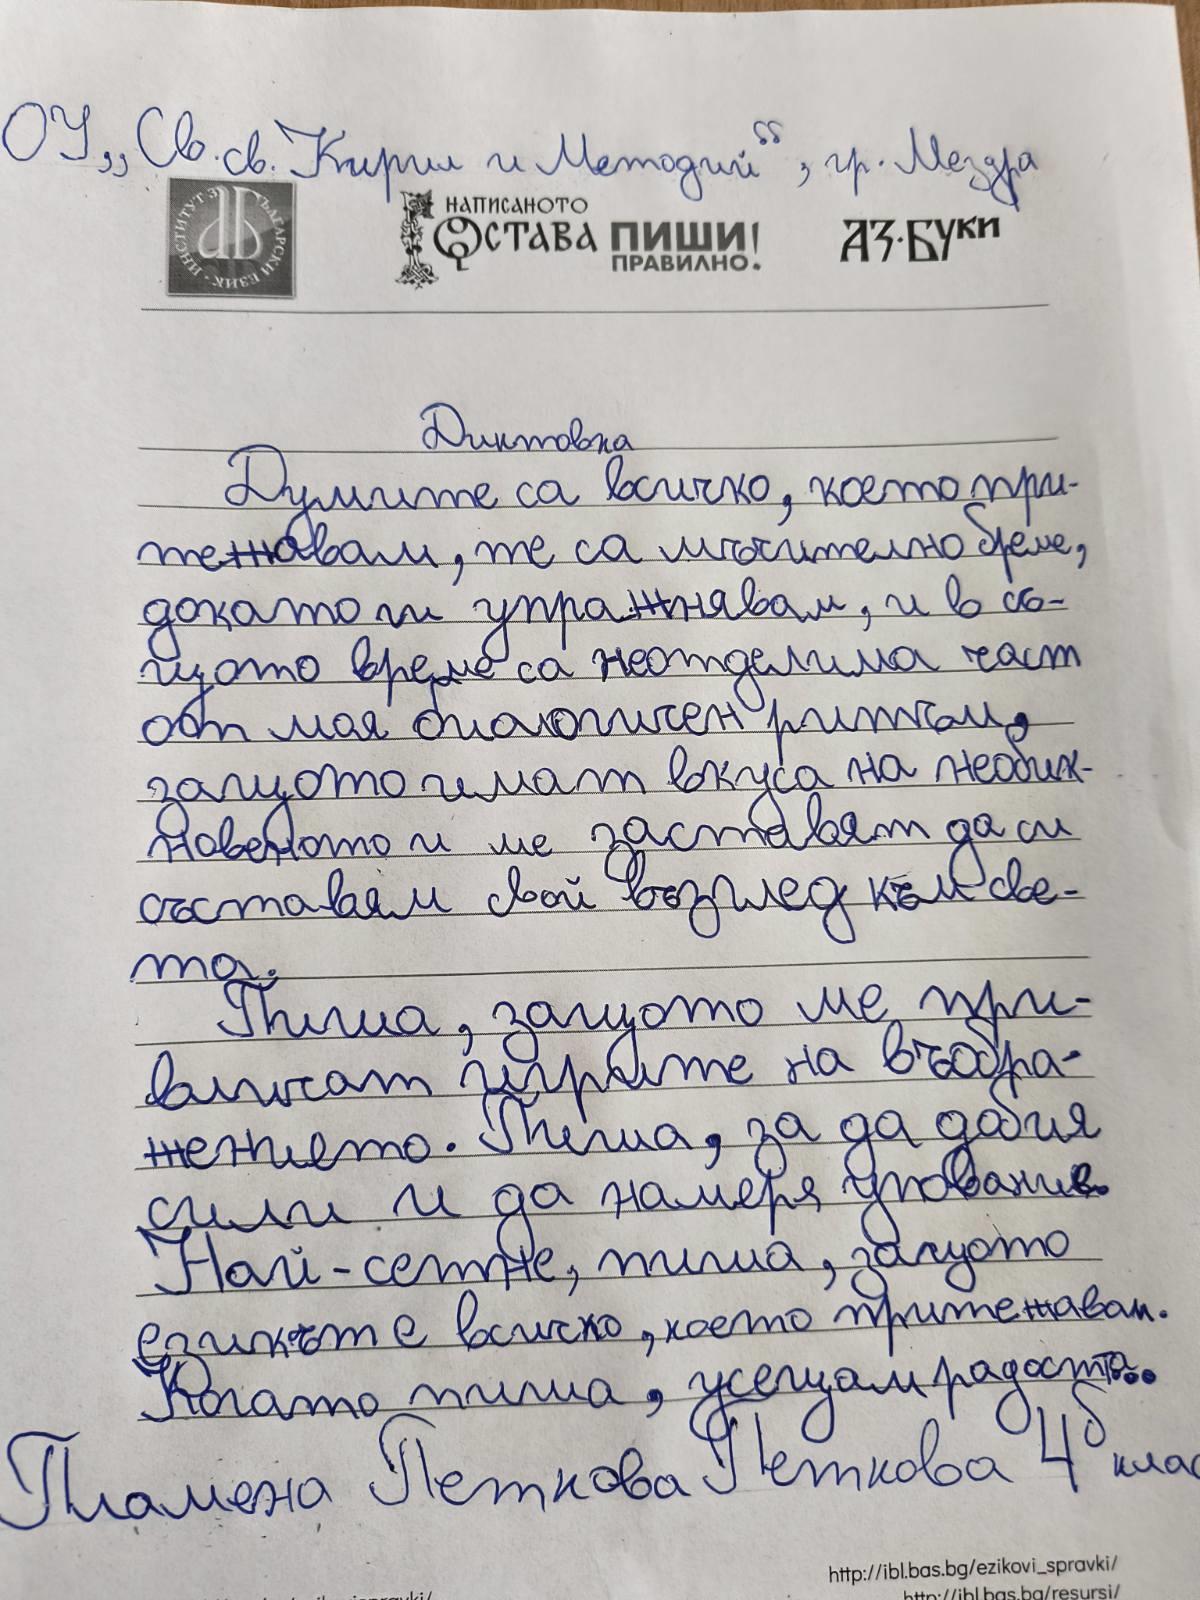 ОУ „Св. св. Кирил и Методий“, гр. Мездра
ИНСТИТУТ ЗА БЪЛГАРСКИ ЕЗИК
НАПИСАНОТО
ОСТАВА ПИШИ!
ПРАВИЛНО.
АЗ·БУКИ
Диктовка
Думите са всичко, което при-
тежавам, те са мъчително бреме,
докато ги упражнявам, и в съ-
щото време са неотделима част
от моя биологичен ритъм,
защото имат вкуса на необик-
новеното и ме заставят да си
съставям свой възглед към све-
та.
Пиша, защото ме при-
вличат игрите на въобра-
жението. Пиша, за да добия
сили и да намеря упование.
Най-сетне, пиша, защото
езикът е всичко, което притежавам.
Когато пиша, усещам радостта...
Пламена Петкова Петкова 4б клас
http://ibl.bas.bg/ezikovi_spravki/
http://ibl.bas.bg/resursi/